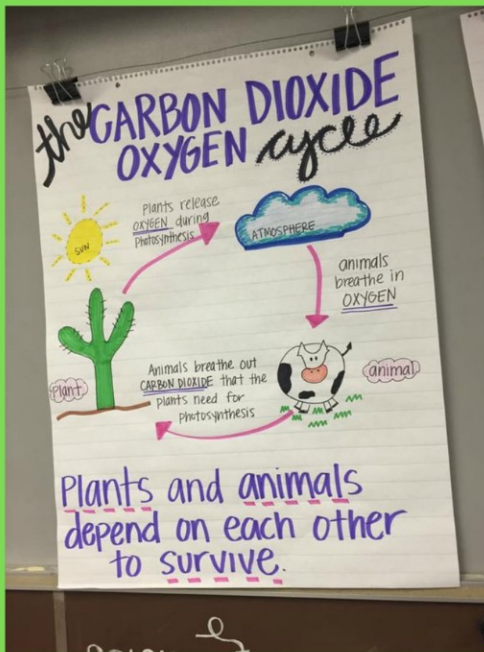 the CARBON DIOXIDE
OXYGEN cycle
SUN
Plants release
OXYGEN during
Photosynthesis
ATMOSPHERE
animals
breathe in
OXYGEN
Plant
Animals breathe out
CARBON DIOXIDE that the
plants need for
Photosynthesis
animal
Plants and animals
depend on each other
to survive.